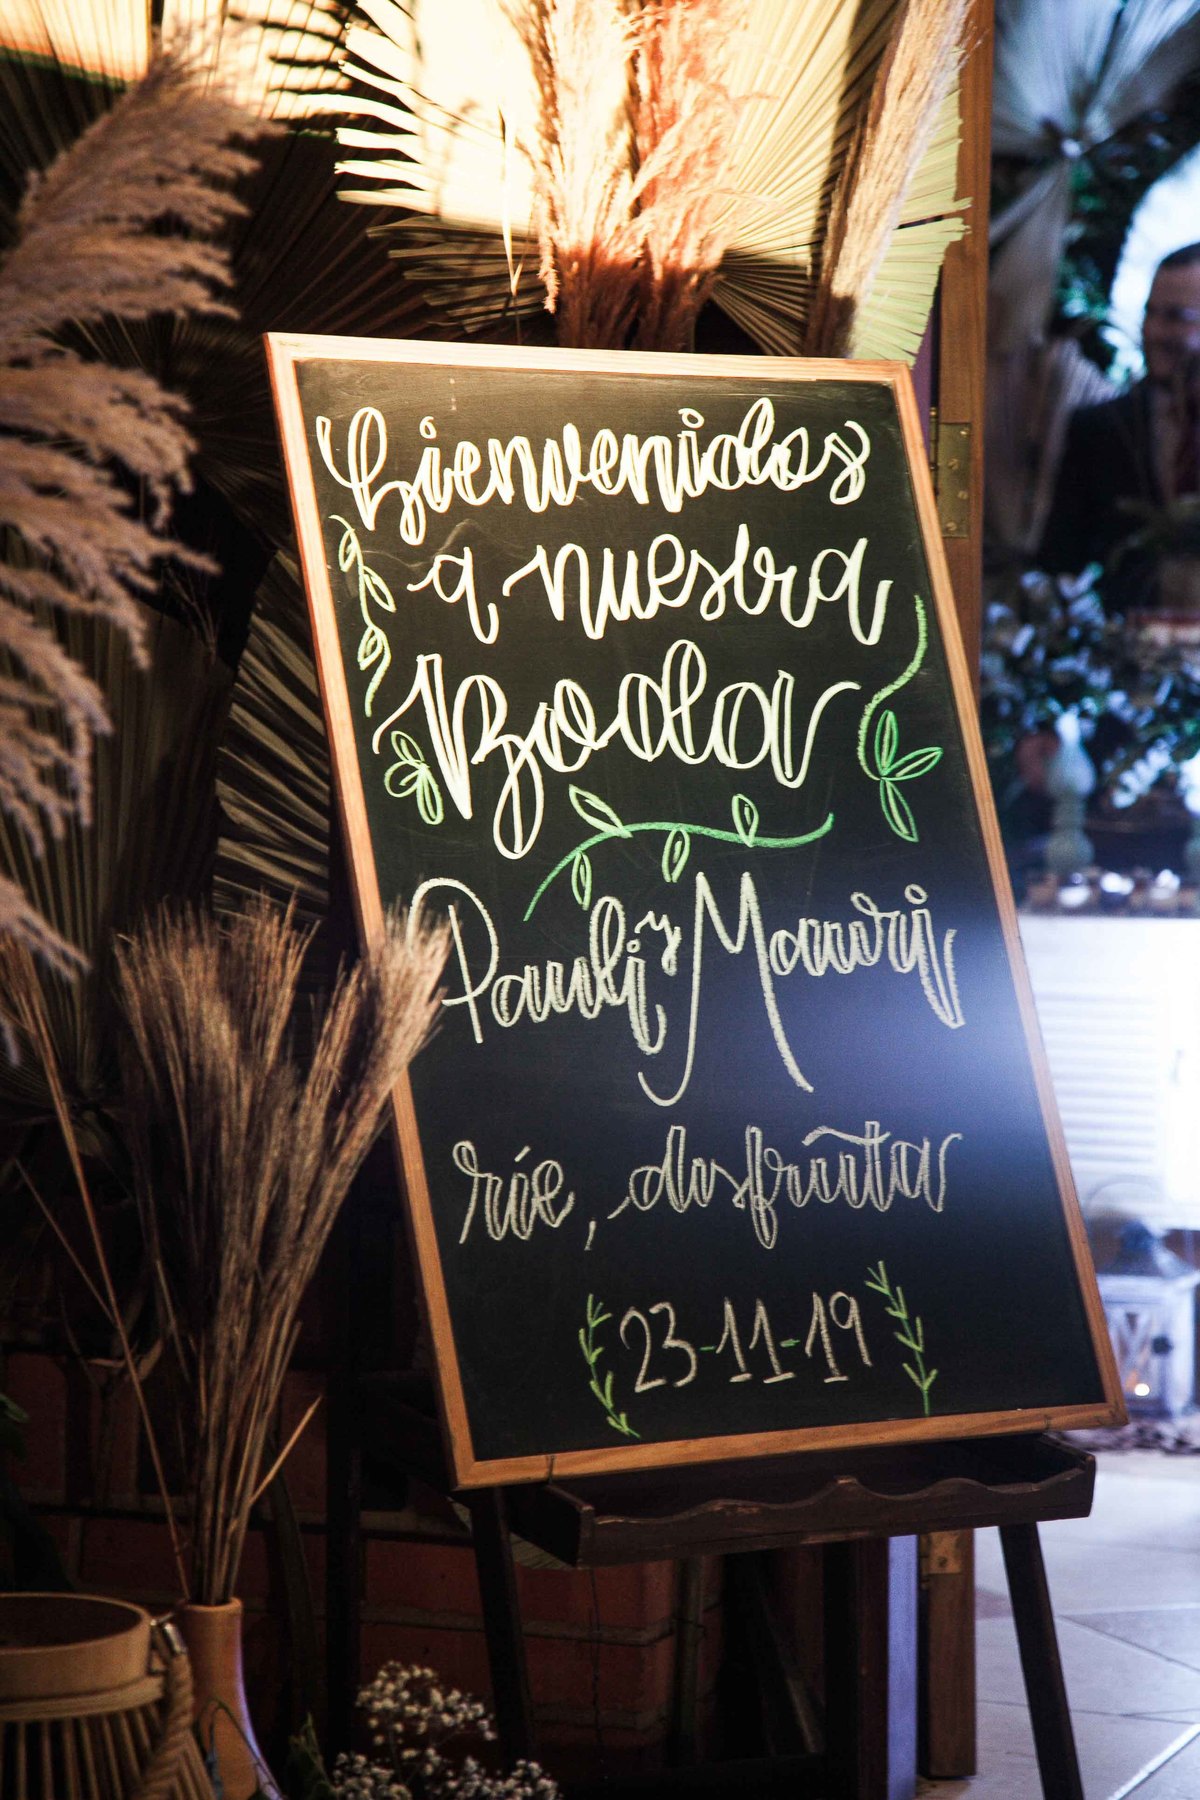 bienvenidos
a nuestra
Boda
Pauli y Mauri
ríe, disfruta
23-11-19